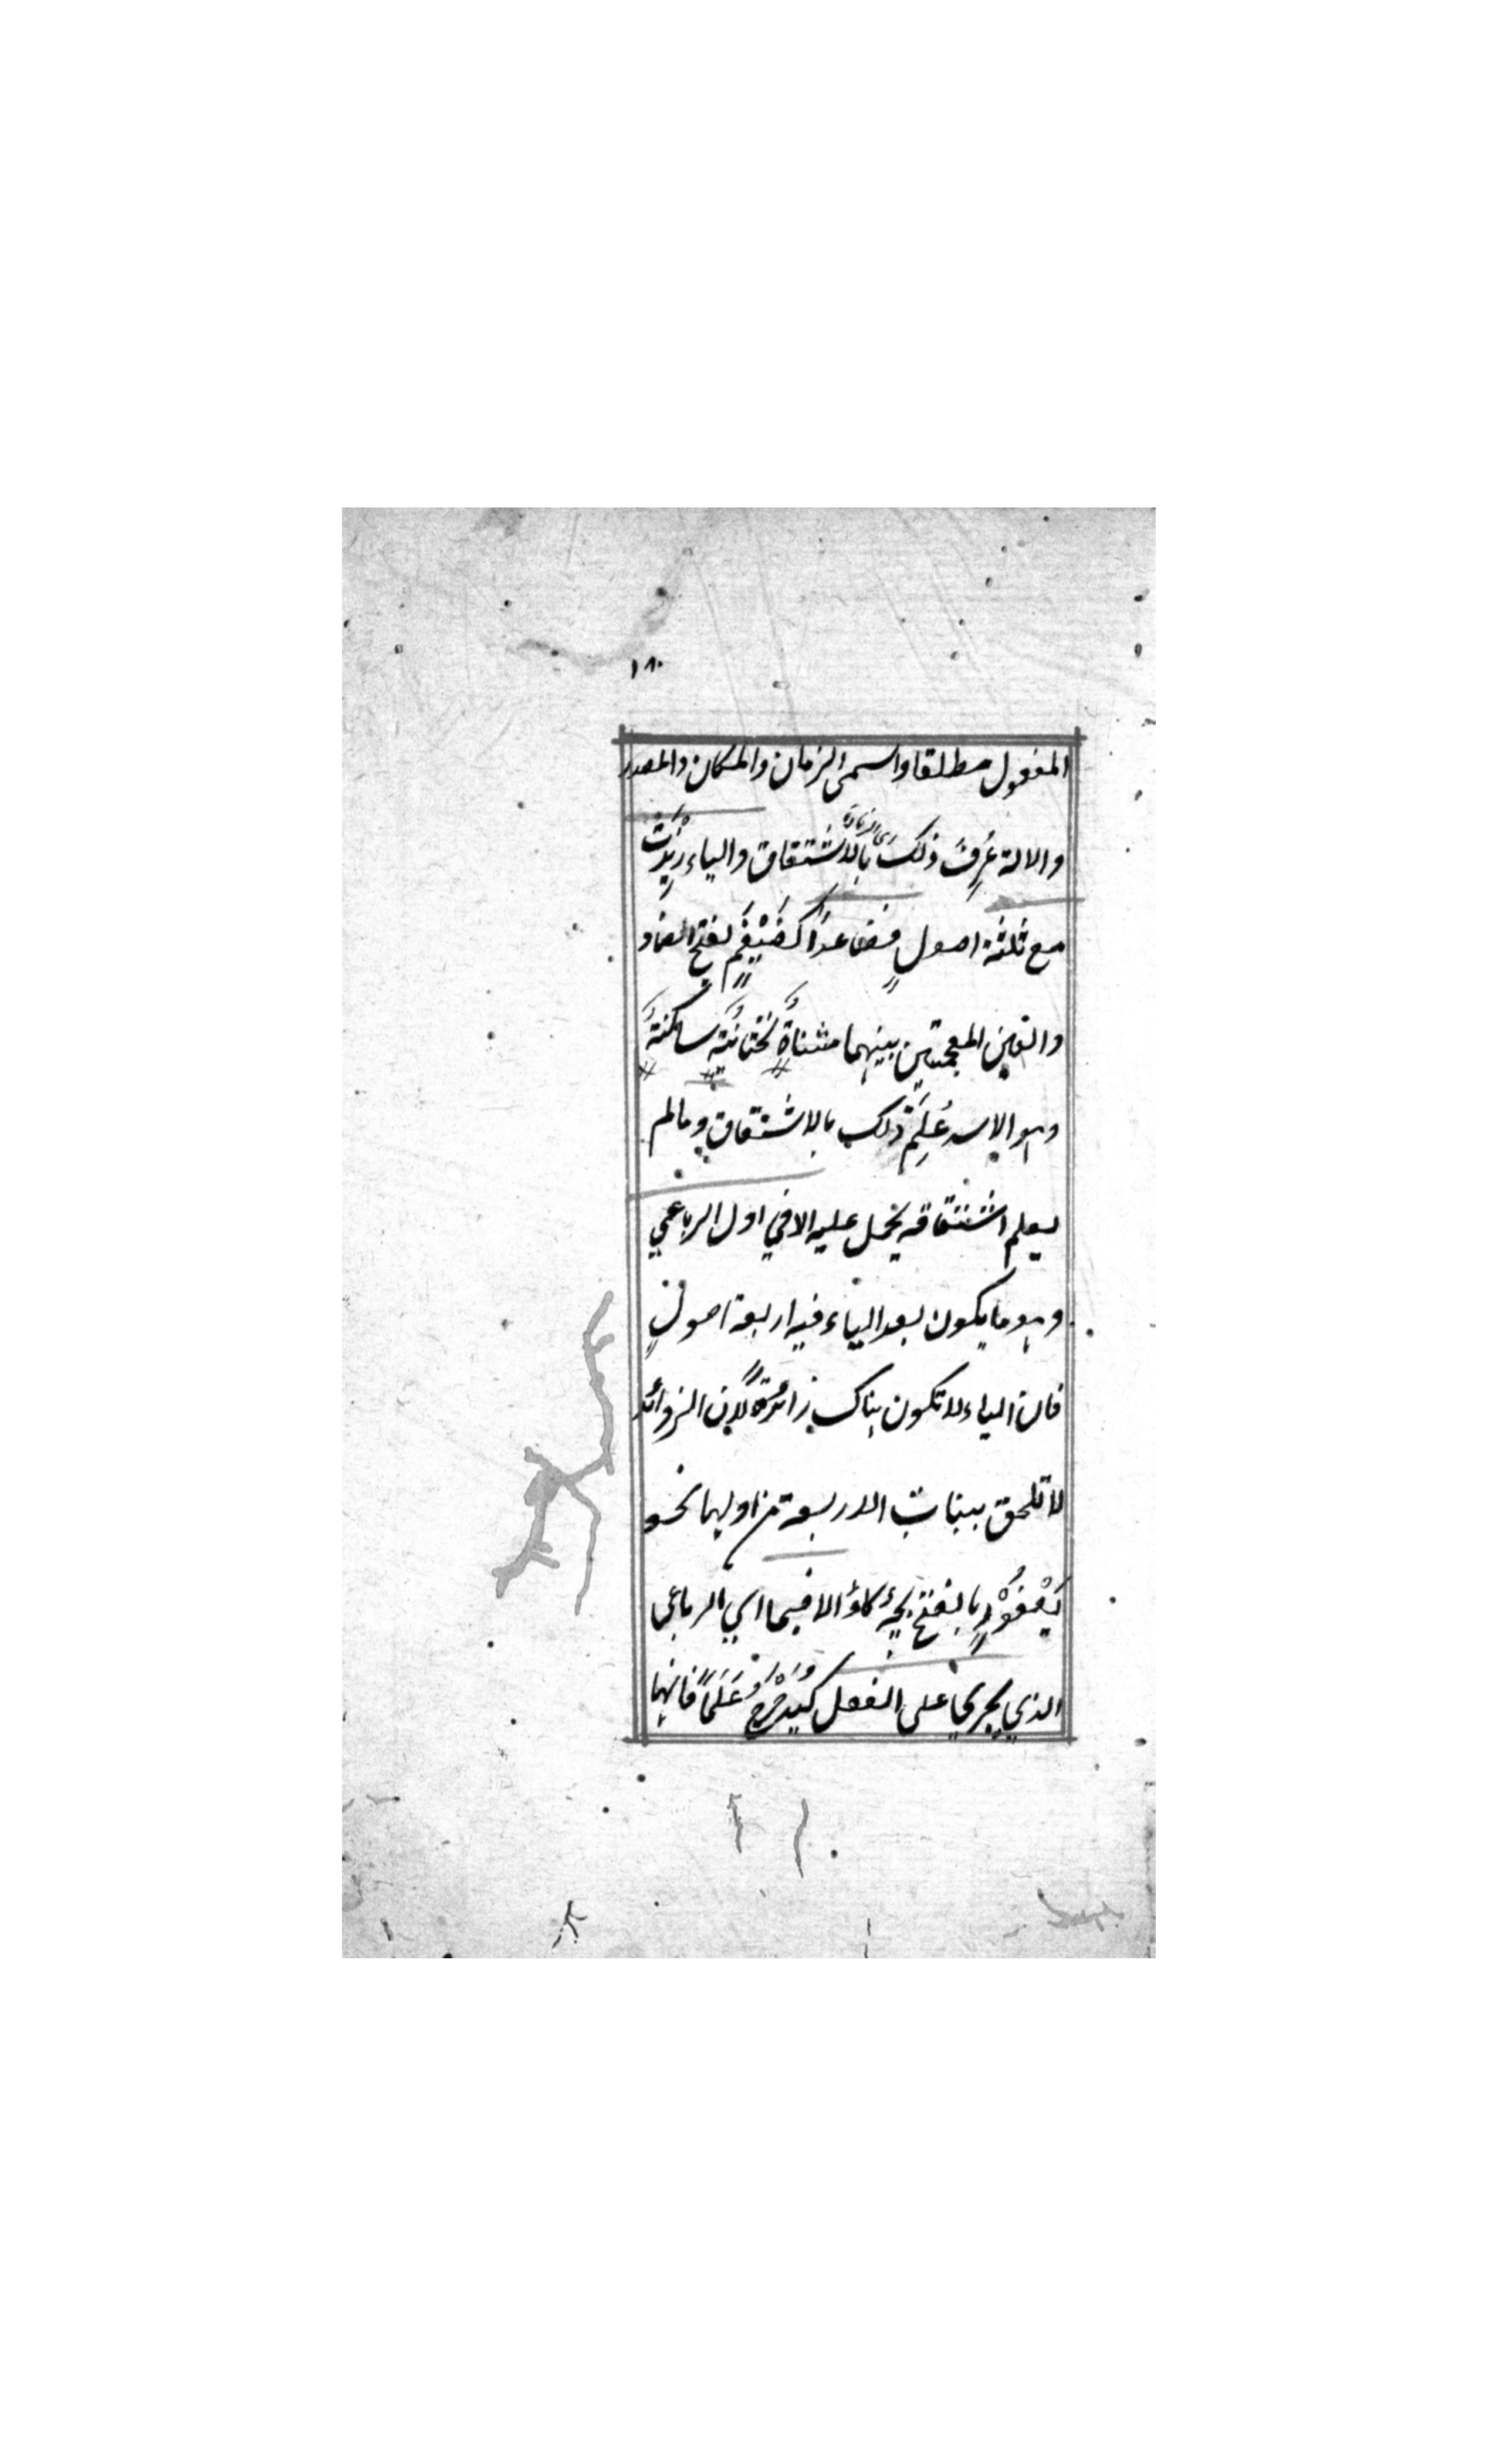 ١٨٠
المفعول مطلقا واسمى الزمان والمكان والمصدر
والالة عُرِفَ ذلك بالاشتقاق والياء زِيْدَتْ
اى الزيادة
مع ثلثة اصولٍ فصاعدًا كضَيْغَمٍ بفتح الضاد
والغين المعجمتين بينهما مثناةٌ تحتانيّةٌ ساكنةٌ
وهو الاسد عُلِمَ ذلك بالاشتقاق وما لم
يعلم اشتقاقه يحمل عليه الا في اول الرباعي
وهو ما يكون بعد الياء فيه اربعة اصولٍ
فان الياء لا تكون هناك زائدةً لان الزوائد
لا تلحق ببنات الاربعة من اولها نحو
الا فيما اي الرباعى
الذي يجري على الفعل كيُدَحْرِجُ عَلَمًا فانها